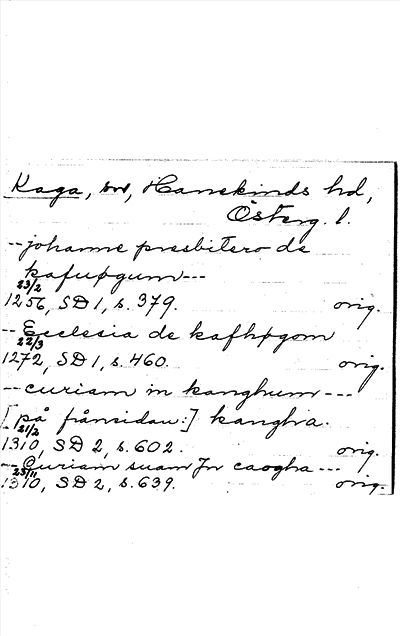 Kaga, sn, Hanekinds hd,
Österg. l.
-- johanne presbitero de
kafupgum ---
23/2
1256, SD 1, s. 379. orig.
-- Ecclesia de kafhøgom
22/3
1272, SD 1, s. 460. orig.
-- curiam in kanghum ---
[på frånsidan:] kangha.
21/2
1310, SD 2, s. 602. orig.
-- Curiam suam Jn caogha ---
23/11
1310, SD 2, s. 639. orig.